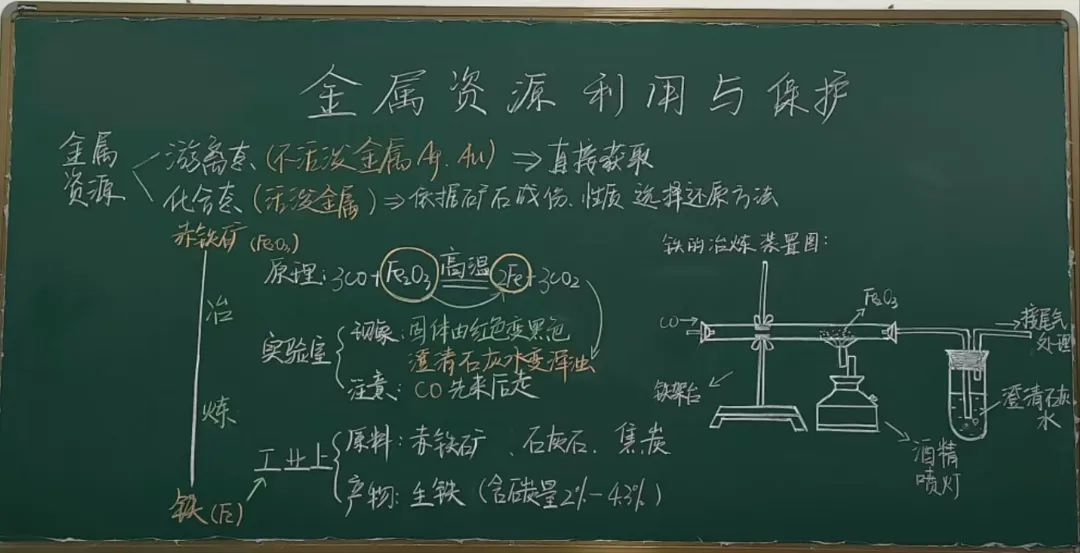 金属资源利用与保护
金属资源
游离态(不活泼金属Ag、Au)⇒直接获取
化合态(活泼金属)⇒依据矿石成份、性质选择还原方法
赤铁矿(Fe₂O₃)
冶炼
铁(Fe)
原理:3CO+Fe₂O₃ 高温 2Fe+3CO₂
实验室
现象:固体由红色变黑色
澄清石灰水变浑浊
注意:CO先来后走
工业上
原料:赤铁矿、石灰石、焦炭
产物:生铁(含碳量2%-4.3%)
铁的冶炼装置图:
CO
Fe₂O₃
接尾气处理
铁架台
澄清石灰水
酒精喷灯